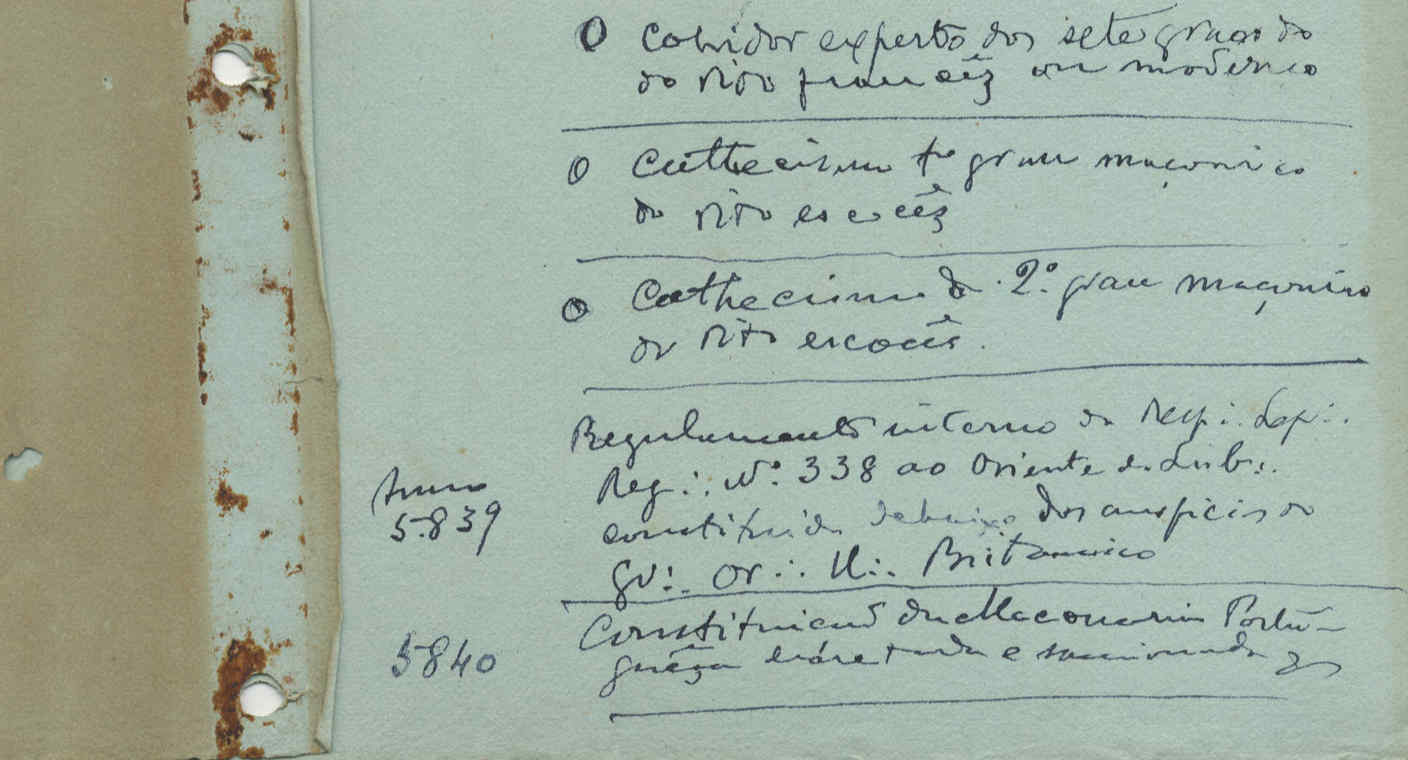 O cobridor experto dos sete graos do
do rito francêz ou moderno
O Cathecismo 1º grau maçonico
do rito escocêz
O Cathecismo do 2º grau maçonico
do rito escocês.
Regulamento interno da Resp∴ Loj∴
Reg∴ Nº 338 ao Oriente de Lisb∴
Anno
5.839
constituida debaixo dos auspicios do
Gr∴ Or∴ U∴ Britanico
Constituicaõ da Maconaria Portu-
5840
guêza decretada e sanccionada